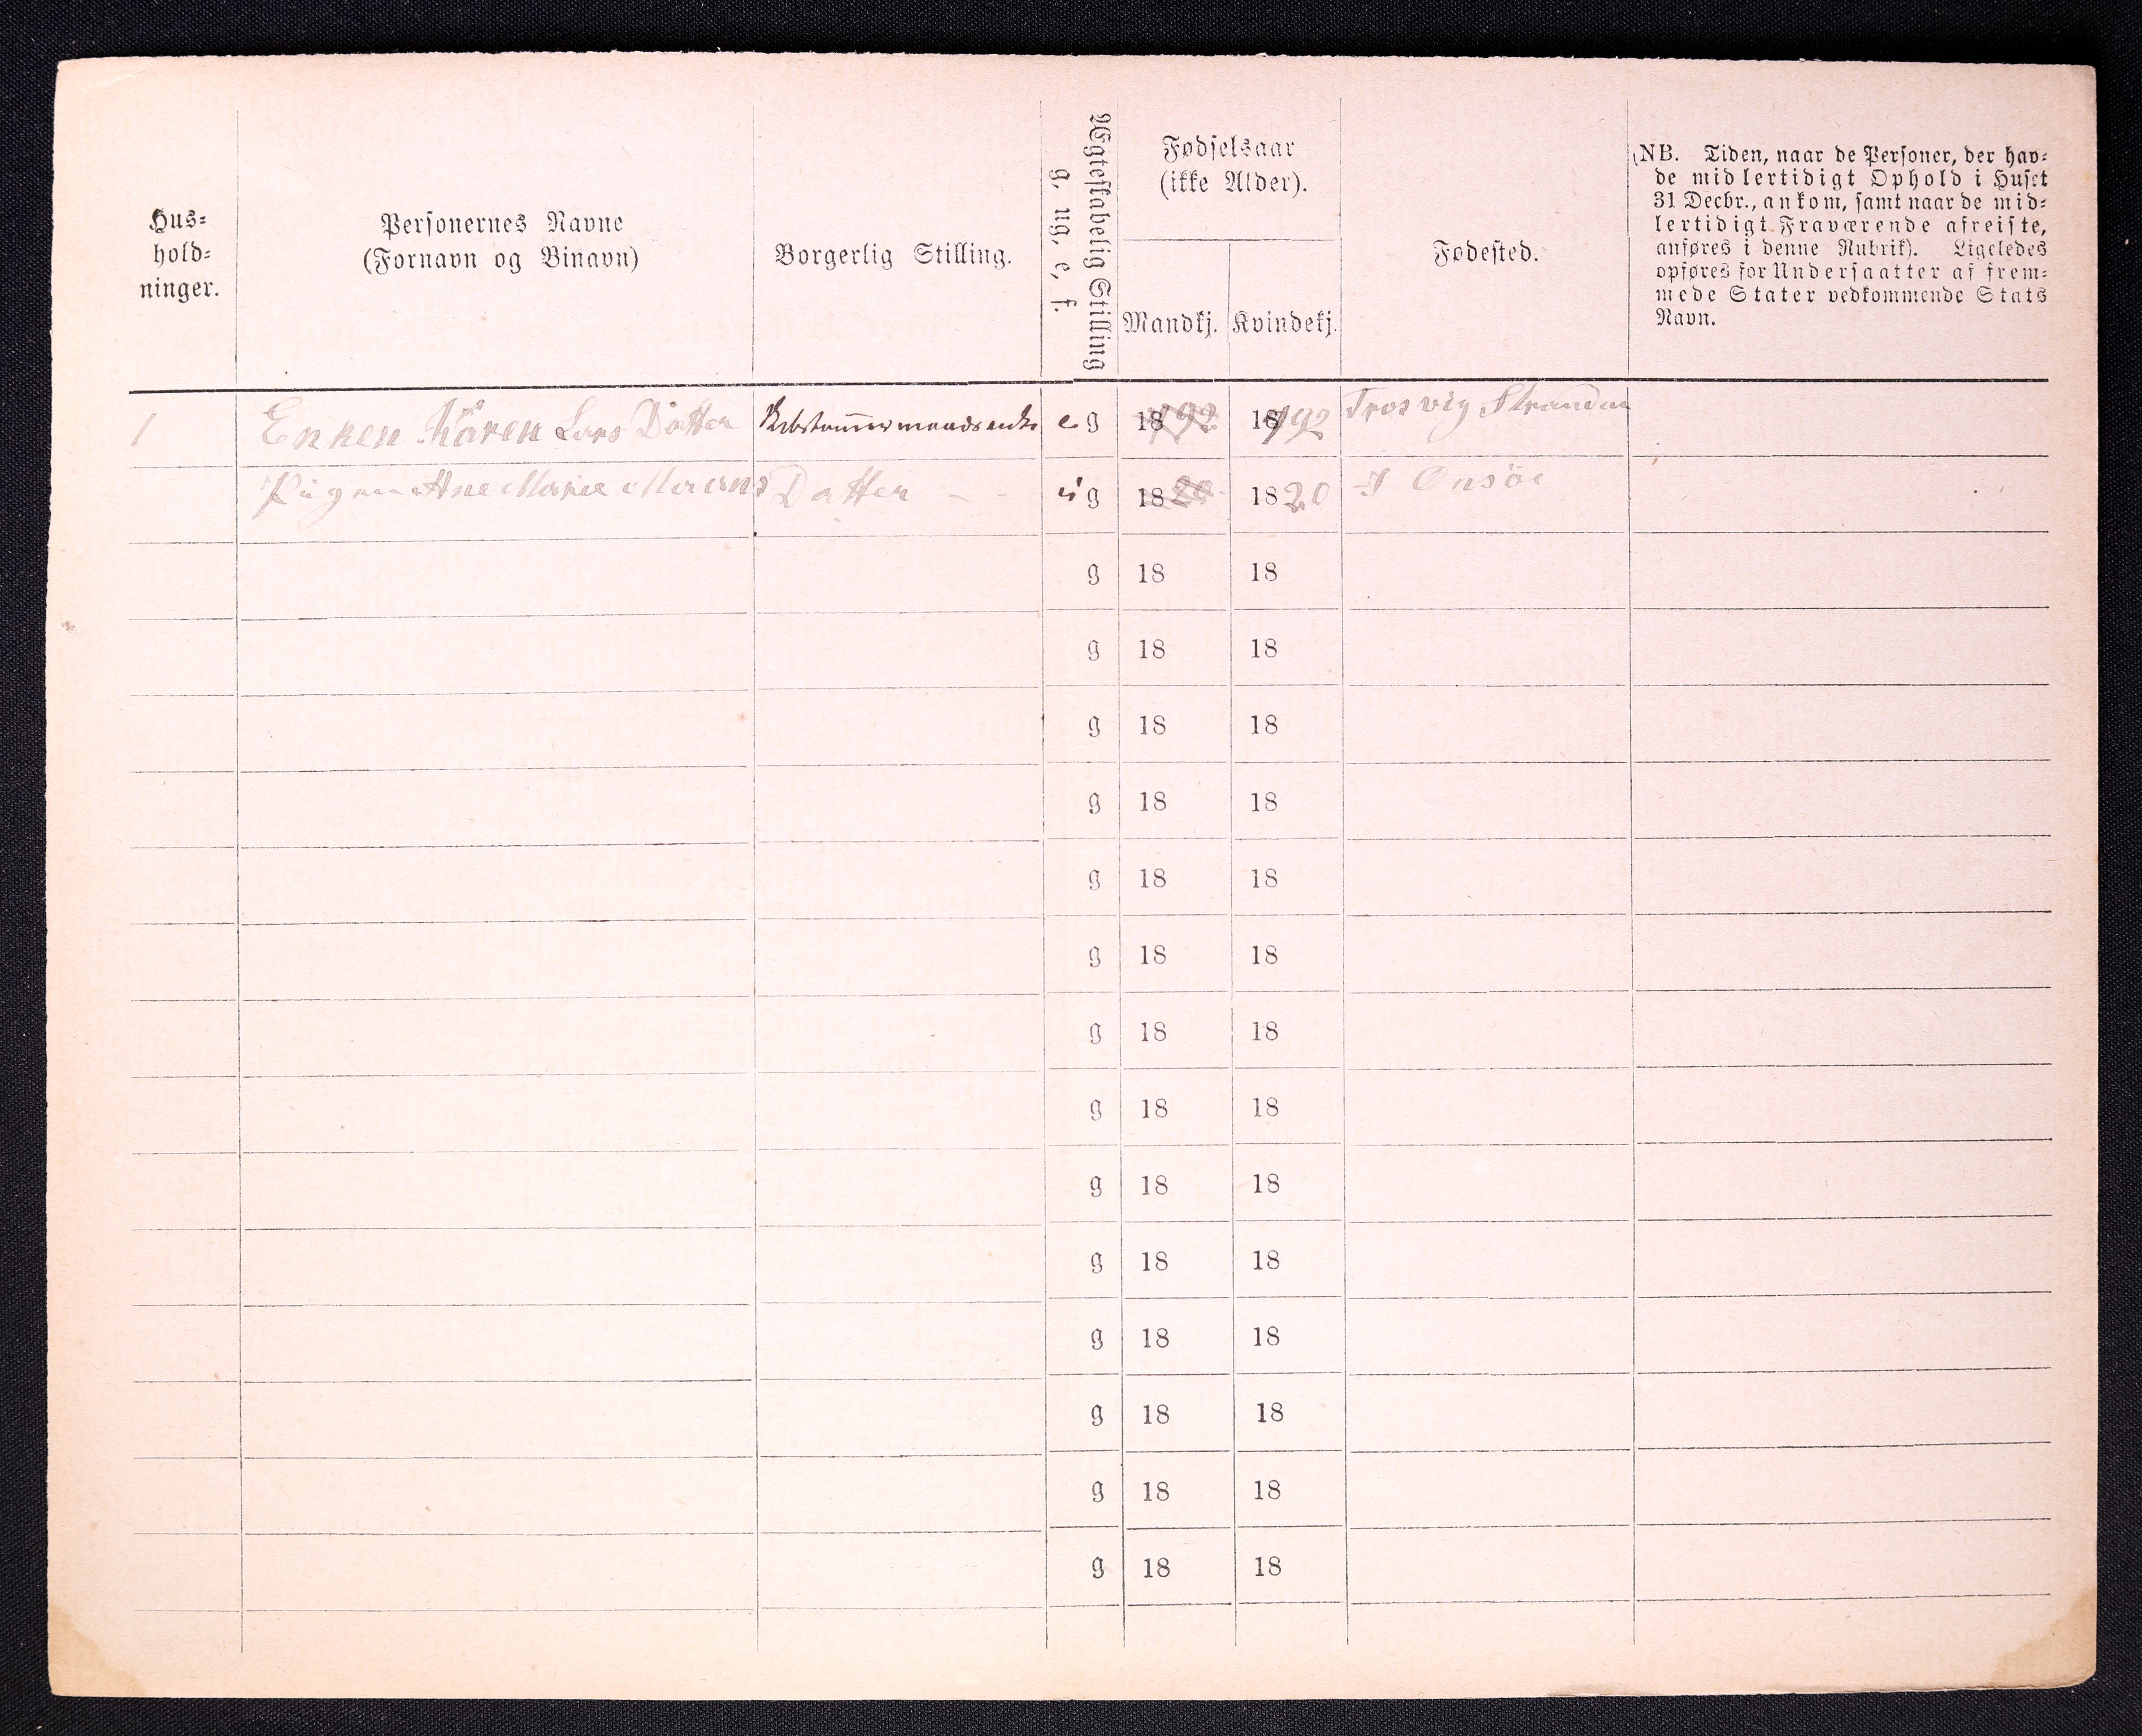 Hus-
hold-
ninger.
Personernes Navne
(Fornavn og Binavn)
Borgerlig Stilling.
Ægteskabelig Stilling
g. ug. e, f.
Fødselsaar
(ikke Alder).
Mandkj. Kvindekj.
Fødested.
(NB. Tiden, naar de Personer, der hav-
de midlertidigt Ophold i Huset
31 Decbr., ankom, samt naar de mid-
lertidigt Fraværende afreiste,
anføres i denne Rubrik). Ligeledes
opføres for Undersaatter af frem-
mede Stater vedkommende Stats
Navn.
1 Enken Karen Lars Datter e g 1892 18 792 Trosvig Stranden
Pigen Ane Marie Datter u g 1820 1820 I Onsöe
g 18 18
g 18 18
g 18 18
g 18 18
g 18 18
g 18 18
g 18 18
g 18 18
g 18 18
g 18 18
g 18 18
g 18 18
g 18 18
g 18 18